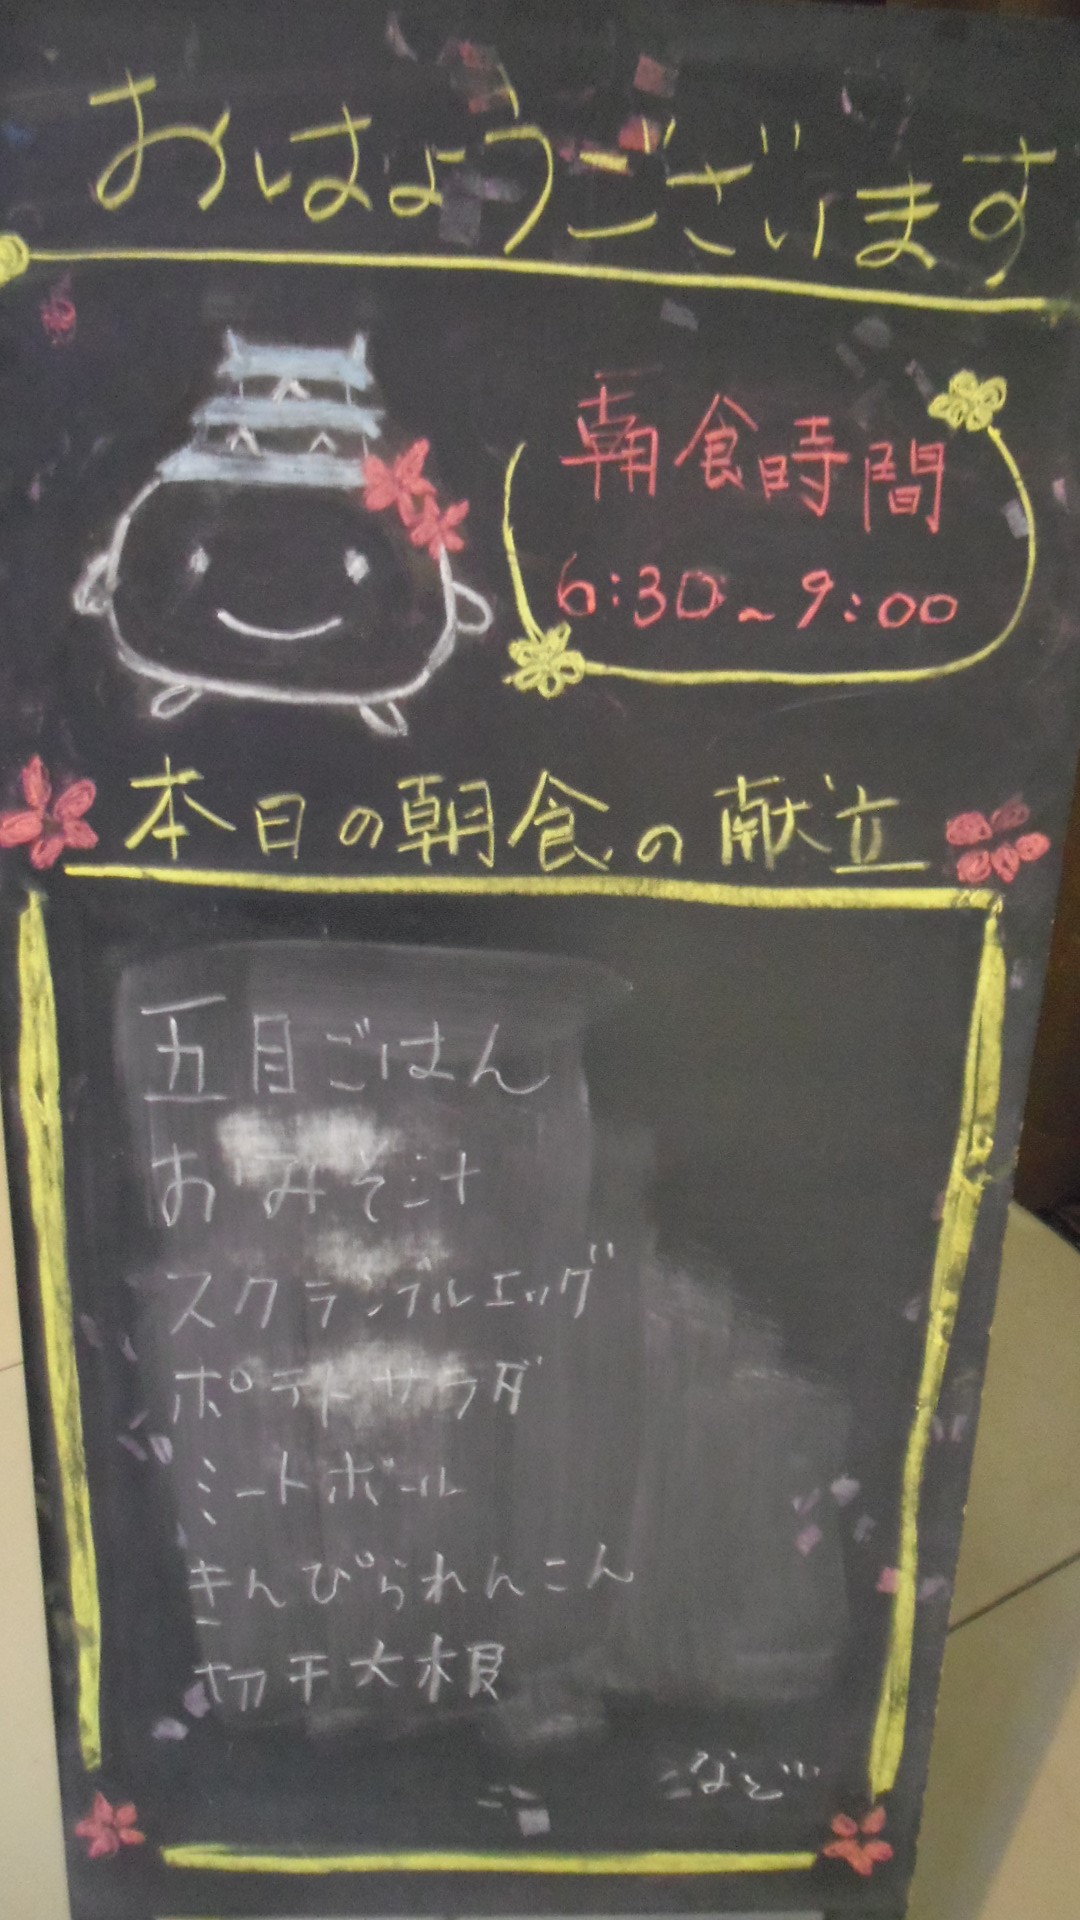 おはようございます
朝食時間
6:30~9:00
本日の朝食の献立
五目ごはん
おみそ汁
スクランブルエッグ
ポテトサラダ
ミートボール
きんぴられんこん
切干大根
など…